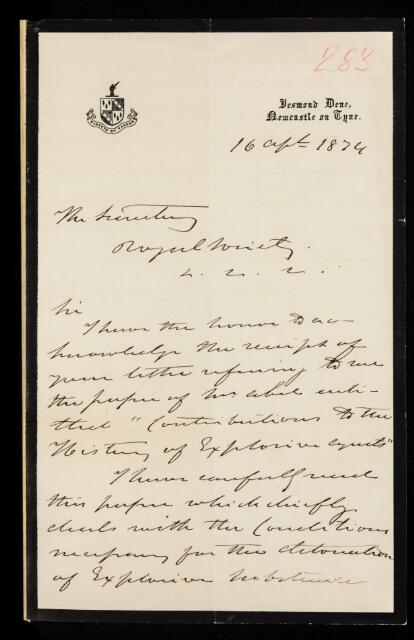 283
Jesmond Dene,
Newcastle on Tyne.
16 apl 1874
The Secretary
Royal Society.
Sir
I have the honor to ac-
knowledge the receipt of
your letter referring to me
the paper of Mr Abel enti-
tled "Contributions to the
History of Explosive agents"
I have carefully read
this paper which chiefly
deals with the Conditions
necessary for the detonation
of Explosive Substances